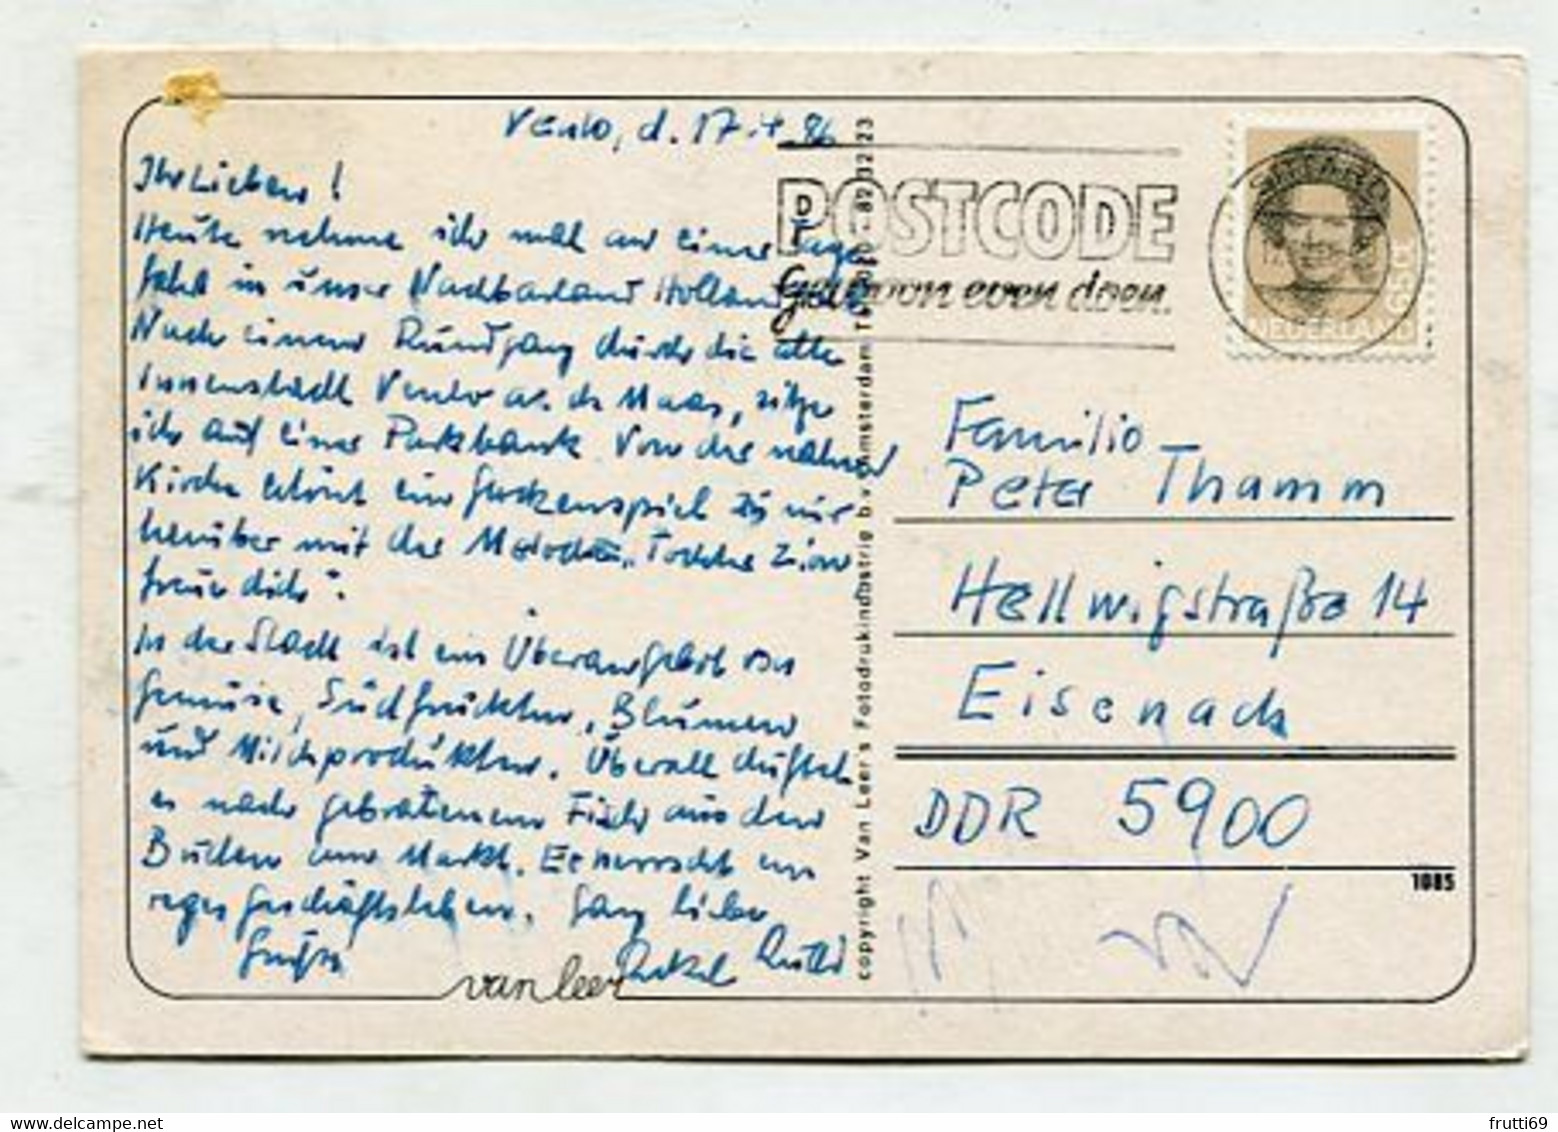 Venlo, d. 17.4.86
Ihr Lieben!
Heute nehme ich mal an einer Tages
fahrt in unser Nachbarland Holland teil.
Nach einem Rundgang durch die alte
Innenstadt Venlo a. d. Maas, sitze
ich auf einer Parkbank. Von der nahen
Kirche ertönt ein Glockenspiel zu mir
herüber mit der Melodie „Tochter Zion
freue dich".
In der Stadt ist ein Überangebot von
Gemüse, Südfrüchten, Blumen
und Milchprodukten. Überall duftet
es nach gebratenem Fisch aus den
Buden am Markt. Es herrscht ein
reges Geschäftsleben. Ganz liebe
Grüße
van leer
copyright Van Leer's Fotodrukindustrie b.v. Amsterdam Tel. 020 - 82 32 23
POSTCODE
Gewoon even doen.
SITTARD
NEDERLAND
65c
Familie
Peter Thamm
Hellwigstraße 14
Eisenach
DDR 5900
1085
frutti69